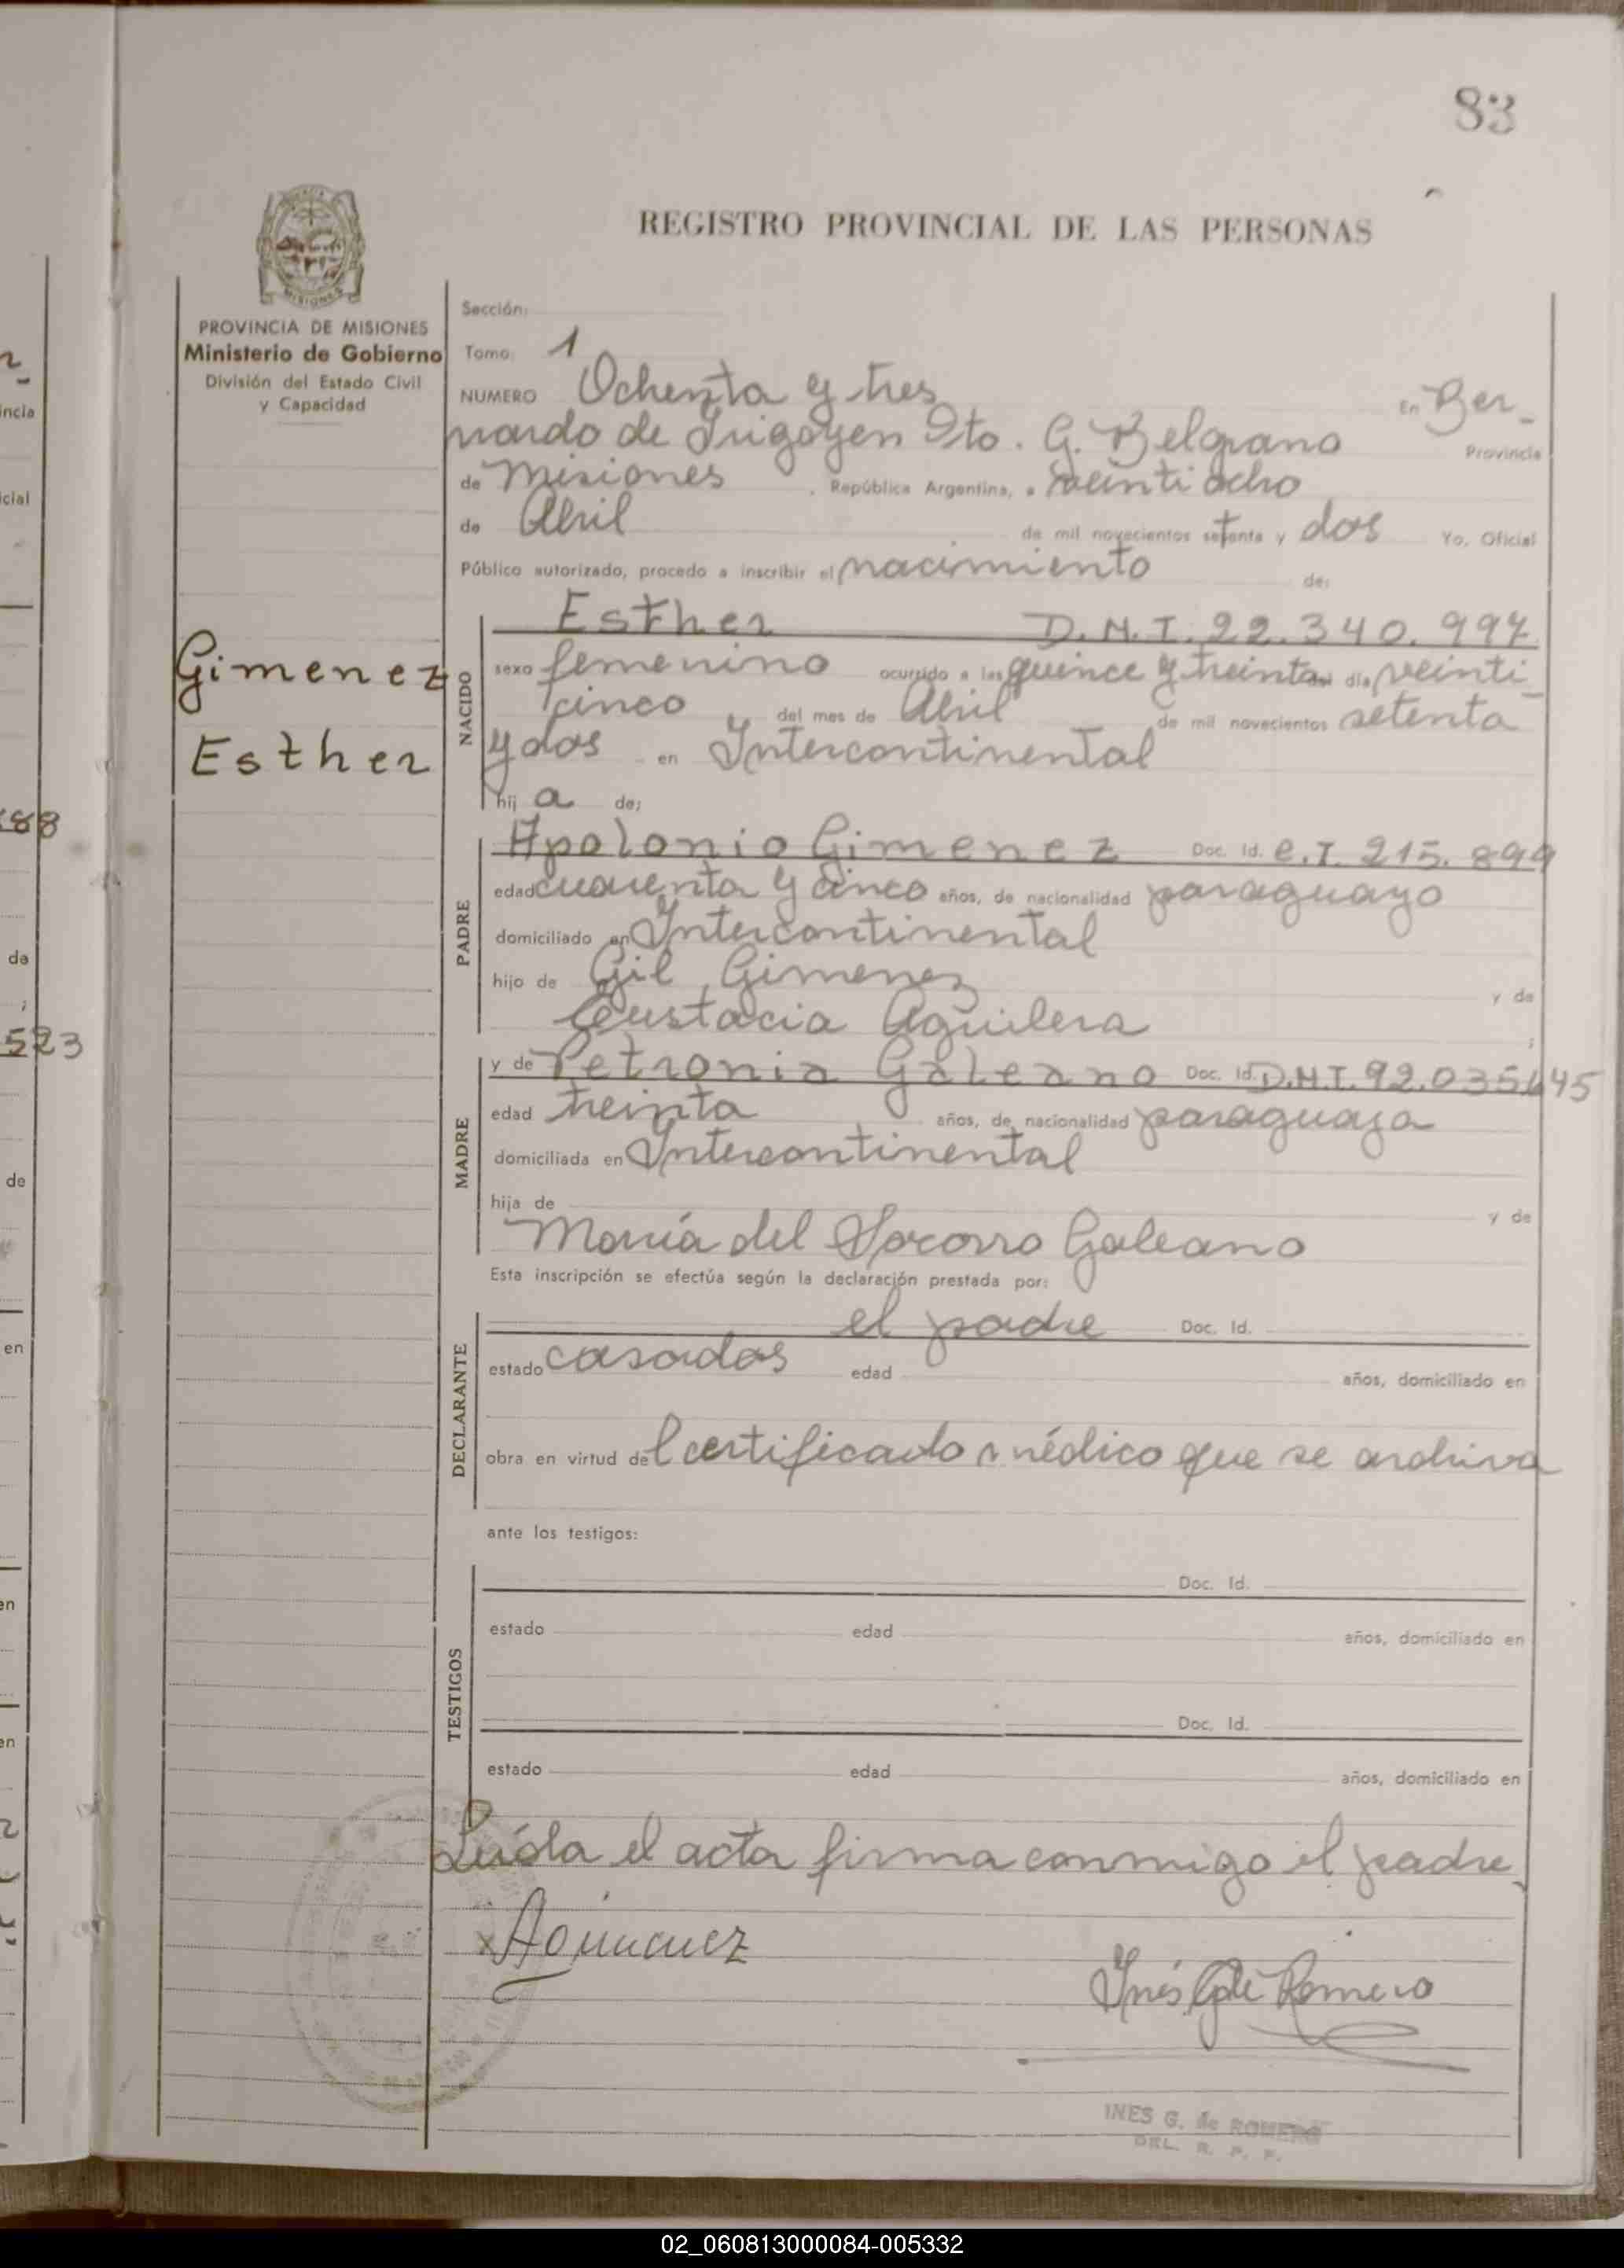 83
REGISTRO PROVINCIAL DE LAS PERSONAS
MISIONES
PROVINCIA DE MISIONES
Ministerio de Gobierno
División del Estado Civil
y Capacidad
Sección:
Tomo: 1
NUMERO Ochenta y tres En Ber-
nardo de Irigoyen Dto. G. Belgrano Provincia
de Misiones, República Argentina, a veinti ocho
de Abril de mil novecientos setenta y dos Yo, Oficial
Público autorizado, procedo a inscribir el nacimiento de:
Gimenez
Esther
NACIDO
Esther D.N.I. 22.340.997
sexo femenino ocurrido a las quince y treinta del día veinti
cinco del mes de Abril de mil novecientos setenta
y dos en Intercontinental
hij a de:
PADRE
Apolonio Gimenez Doc. Id. C.I. 215.899
edad cuarenta y cinco años, de nacionalidad paraguayo
domiciliado en Intercontinental
hijo de Gil Gimenez y de
Eustacia Aguilera ;
MADRE
y de Petronia Galeano Doc. Id. D.N.I. 92.035.645
edad treinta años, de nacionalidad paraguaya
domiciliada en Intercontinental
hija de y de
María del Socorro Galeano
Esta inscripción se efectúa según la declaración prestada por:
DECLARANTE
el padre Doc. Id.
estado casados edad años, domiciliado en
obra en virtud del certificado médico que se archiva
ante los testigos:
TESTIGOS
Doc. Id.
estado edad años, domiciliado en
Doc. Id.
estado edad años, domiciliado en
Leída el acta firma conmigo el padre
x
Inés G. de Romero
INES G. de ROMERO
DEL. R. P. P.
ncia
cial
88
de
;
523
de
en
en
en
02_060813000084-005332